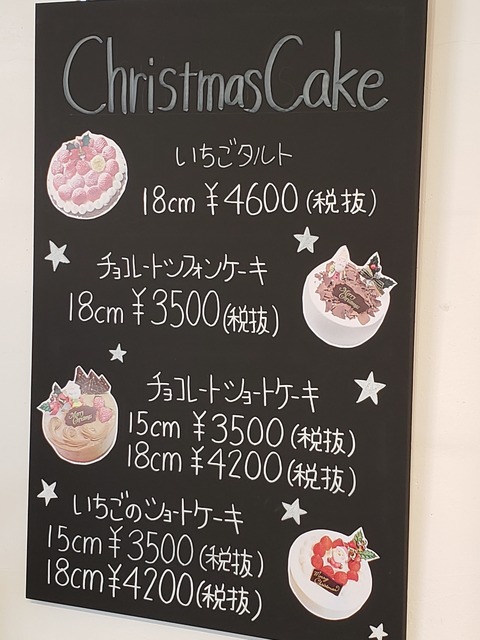 Christmas Cake
いちごタルト
18cm ¥4600 (税抜)
チョコレートシフォンケーキ
18cm ¥3500 (税抜)
チョコレートショートケーキ
15cm ¥3500 (税抜)
18cm ¥4200 (税抜)
いちごのショートケーキ
15cm ¥3500 (税抜)
18cm ¥4200 (税抜)